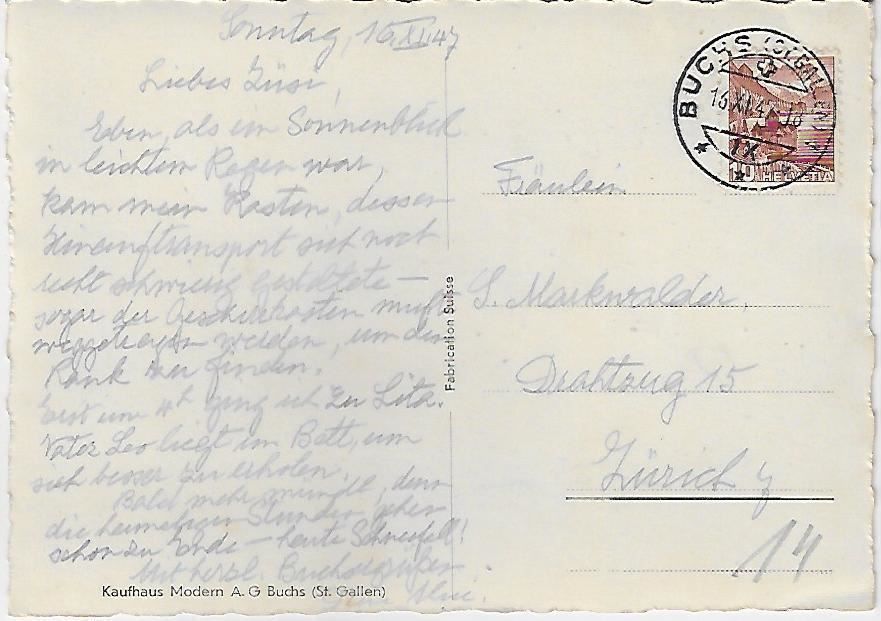 Sonntag, 16.XI.47
Liebes Züsi,
Eben, als ein Sonnenblick
in leichtem Regen war,
kam mein Kasten, dessen
Hinauftransport sich noch
recht schwierig gestaltete —
sogar der Geschirrkasten mußte
weggetragen werden, um den
Rank zu finden.
Erst um 4h ging ich zu Lita.
Vater Leo liegt im Bett, um
sich besser zu erholen.
Bald mehr mündl., denn
die heimeligen Stunden gehen
schon zu Ende — heute Schneefall!
Mit herzl. Buchsergrüßen
Kaufhaus Modern A. G Buchs (St. Gallen)
Fabrication Suisse
BUCHS (ST. GALLEN)
16.XI.47 18
IX
10 HELVETIA
Fräulein
S. Markwalder,
Drahtzug 15
Zürich 7
14